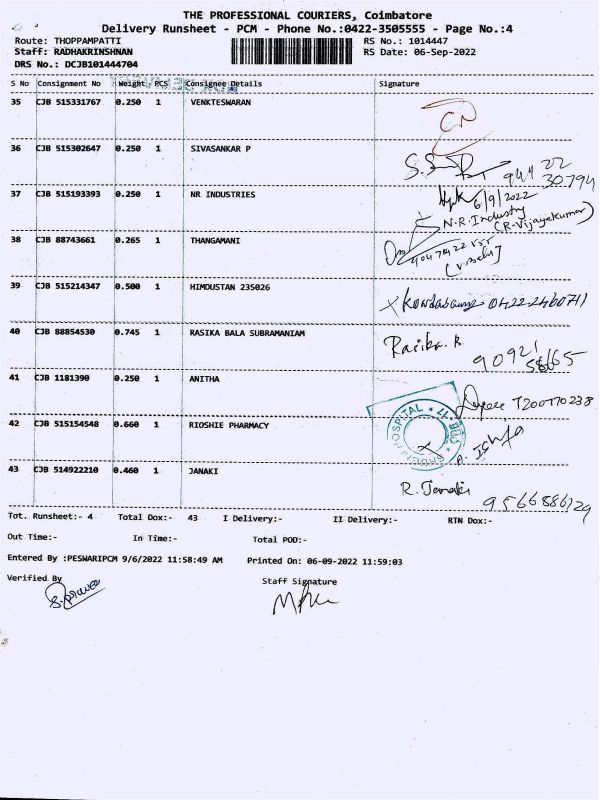 THE PROFESSIONAL COURIERS, Coimbatore
Delivery Runsheet - PCM - Phone No.:0422-3505555 - Page No.:4
Route: THOPPAMPATTI RS No.: 1014447
Staff: RADHAKRINSHNAN RS Date: 06-Sep-2022
DRS No.: DCJB101444704
S No Consignment No Weight PCS Consignee Details Signature
35 CJB 515331767 0.250 1 VENKTESWARAN
36 CJB 515302647 0.250 1 SIVASANKAR P
944 22
30794
37 CJB 515193393 0.250 1 NR INDUSTRIES
6/9/2022
N.R.Industry
(R-Vijayakumar)
38 CJB 88743661 0.265 1 THANGAMANI
39 CJB 515214347 0.500 1 HIMDUSTAN 235026
0422-2460711
40 CJB 88854530 0.745 1 RASIKA BALA SUBRAMANIAM
Rasika. B
90921
58665
41 CJB 1181390 0.250 1 ANITHA
7200770238
42 CJB 515154548 0.660 1 RIOSHIE PHARMACY
HOSPITAL
43 CJB 514922210 0.460 1 JANAKI
R. Janaki
9566886129
Tot. Runsheet:- 4 Total Dox:- 43 I Delivery:- II Delivery:- RTN Dox:-
Out Time:- In Time:- Total POD:-
Entered By :PESWARIPCM 9/6/2022 11:58:49 AM Printed On: 06-09-2022 11:59:03
Verified By Staff Signature